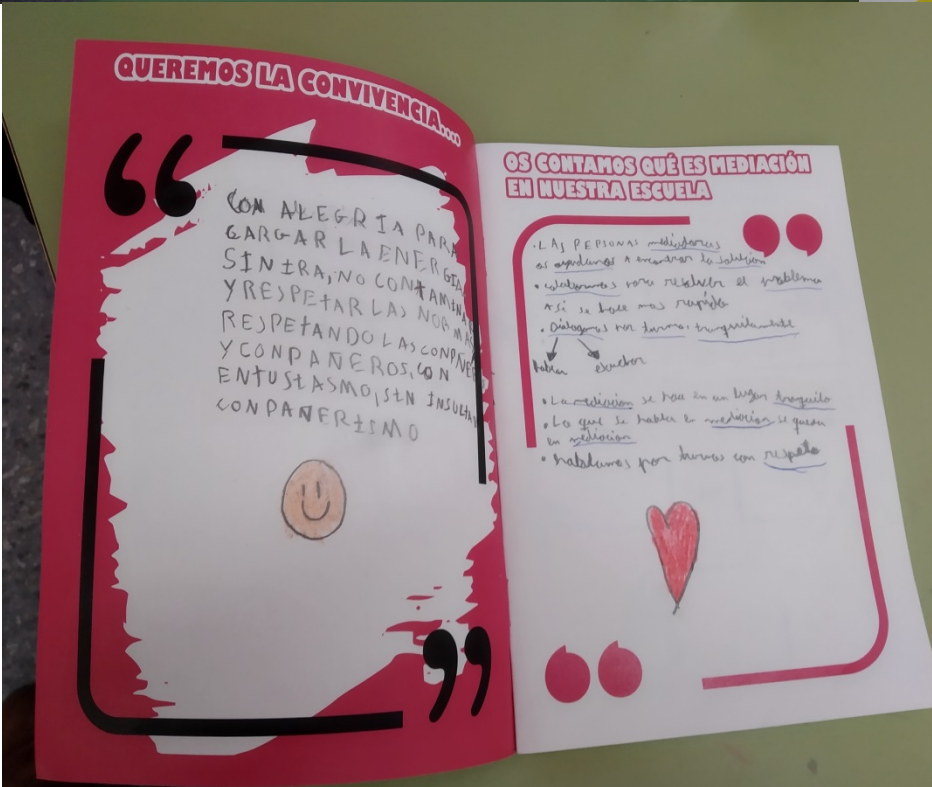 QUEREMOS LA CONVIVENCIA...
CON ALEGRIA PARA
CARGAR LA ENERGIA
SIN IRA, NO CONTAMINAR
Y RESPETAR LAS NORMAS
RESPETANDO LAS CONPAÑE
Y CONPAÑEROS, CON
ENTUSIASMO, SIN INSULTA
CONPAÑERISMO
OS CONTAMOS QUÉ ES MEDIACIÓN
EN NUESTRA ESCUELA
• LAS PERSONAS mediadoras
os ayudamos A encontrar la solución
• colaboramos para resolver el problema
Asi se hace mas rapido
• Dialogamos por turnos tranquilamente
hablar escuchar
• La mediacion se hace en un lugar tranquilo
• Lo que se habla en mediacion se queda
en mediacion
• hablamos por turnos con respeto